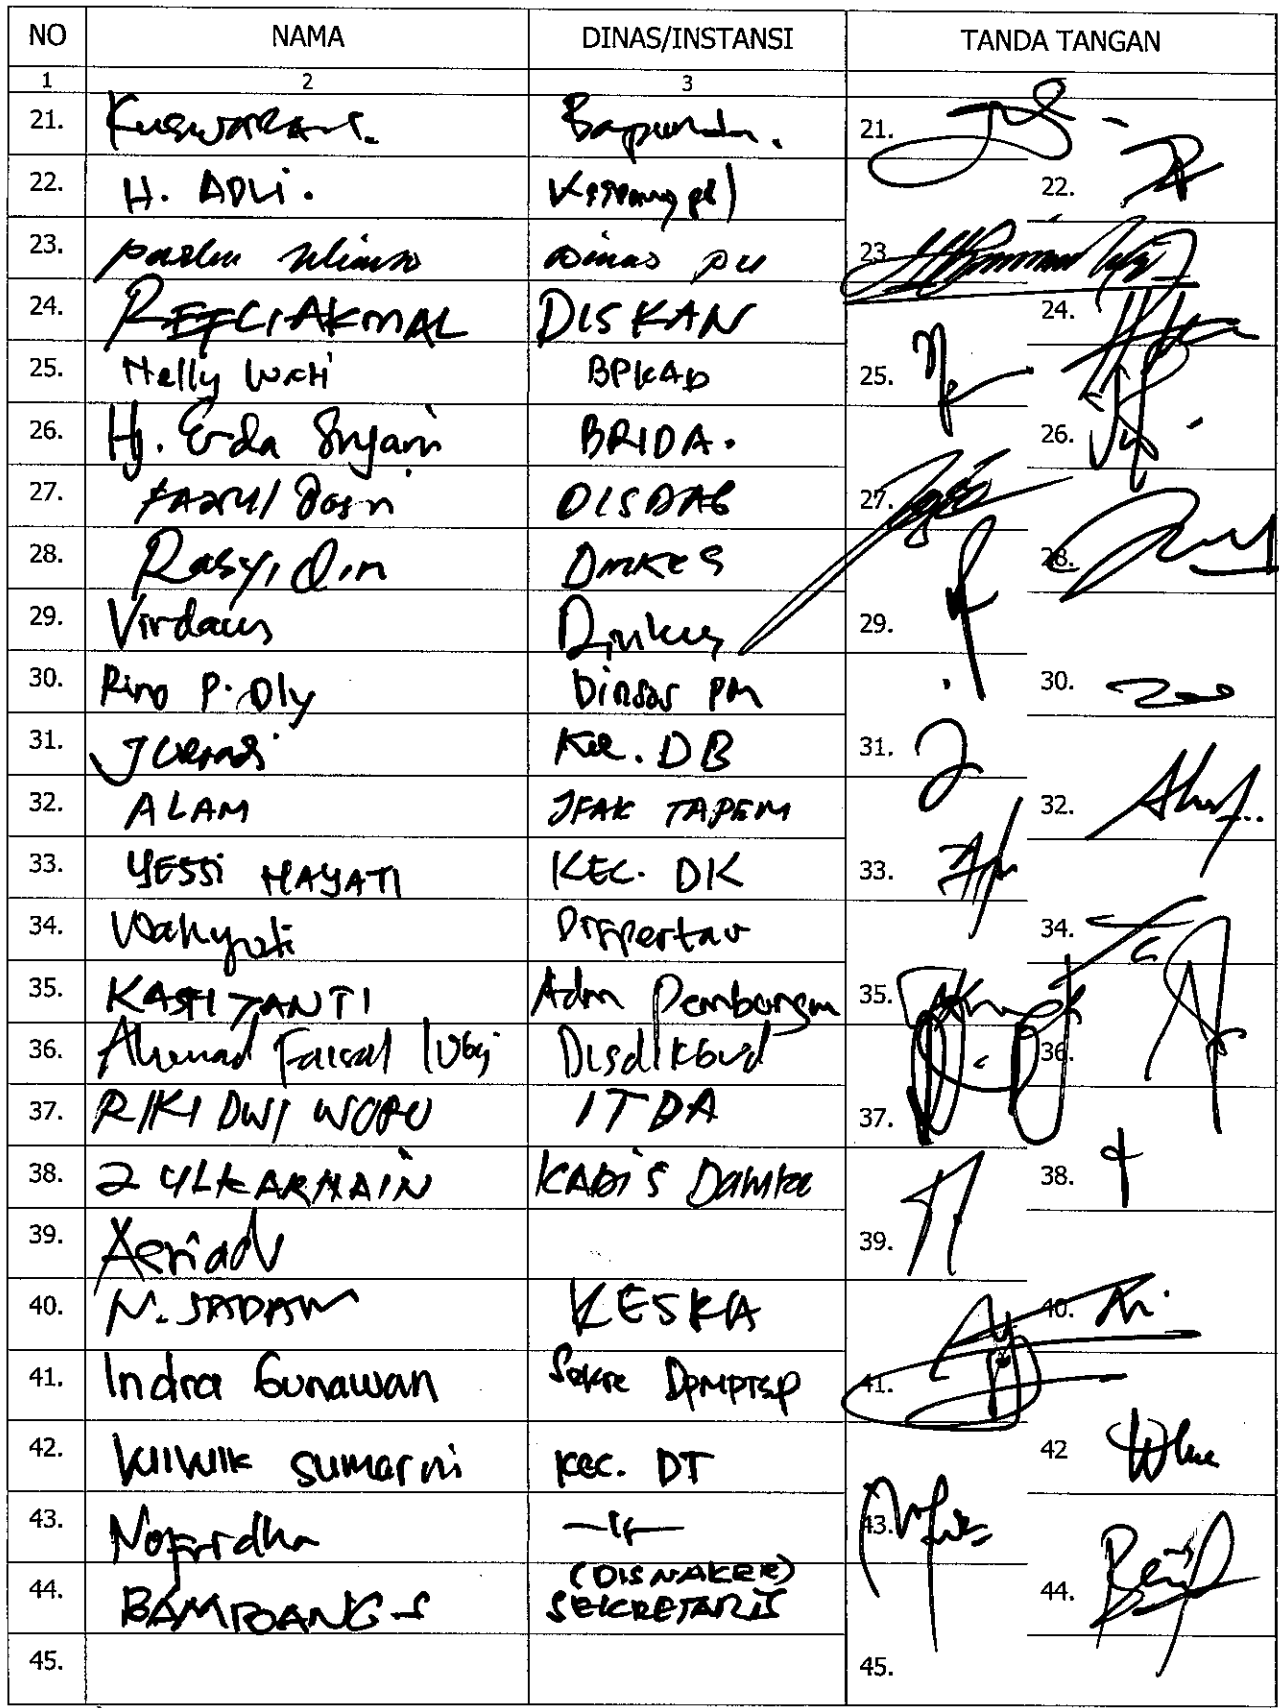 NO NAMA DINAS/INSTANSI TANDA TANGAN
1 2 3
21. 21.
22. H. ADLI. 22.
23. Dinas PU 23
24. REFLI AKMAL DISKAN 24.
25. Nelly Wati BPKAD 25.
26. Hj. Erda Suryani BRIDA. 26.
27. DISDAG 27.
28. Rasyidin DINKES 28.
29. Virdaus Dinkes 29.
30. Rino P. Oly Dinsos PM 30.
31. Junaidi Kec. DB 31.
32. ALAM TAPEM 32.
33. YESSI HAYATI KEC. DK 33.
34. Wahyuti 34.
35. KASTIJANTI Adm Pembangan 35.
36. Ahmad Faisal Disdikbud 36.
37. RIKI DWI WORO ITDA 37.
38. ZULKARNAIN KADIS Damka 38.
39. 39.
40. KESRA 40.
41. Indra Gunawan Sekre DPMPTSP 41.
42. WIWIK Sumarni Kec. DT 42
43. Nofridha 43.
44. BAMBANG S (DISNAKER) 44.
SEKRETARIS
45. 45.